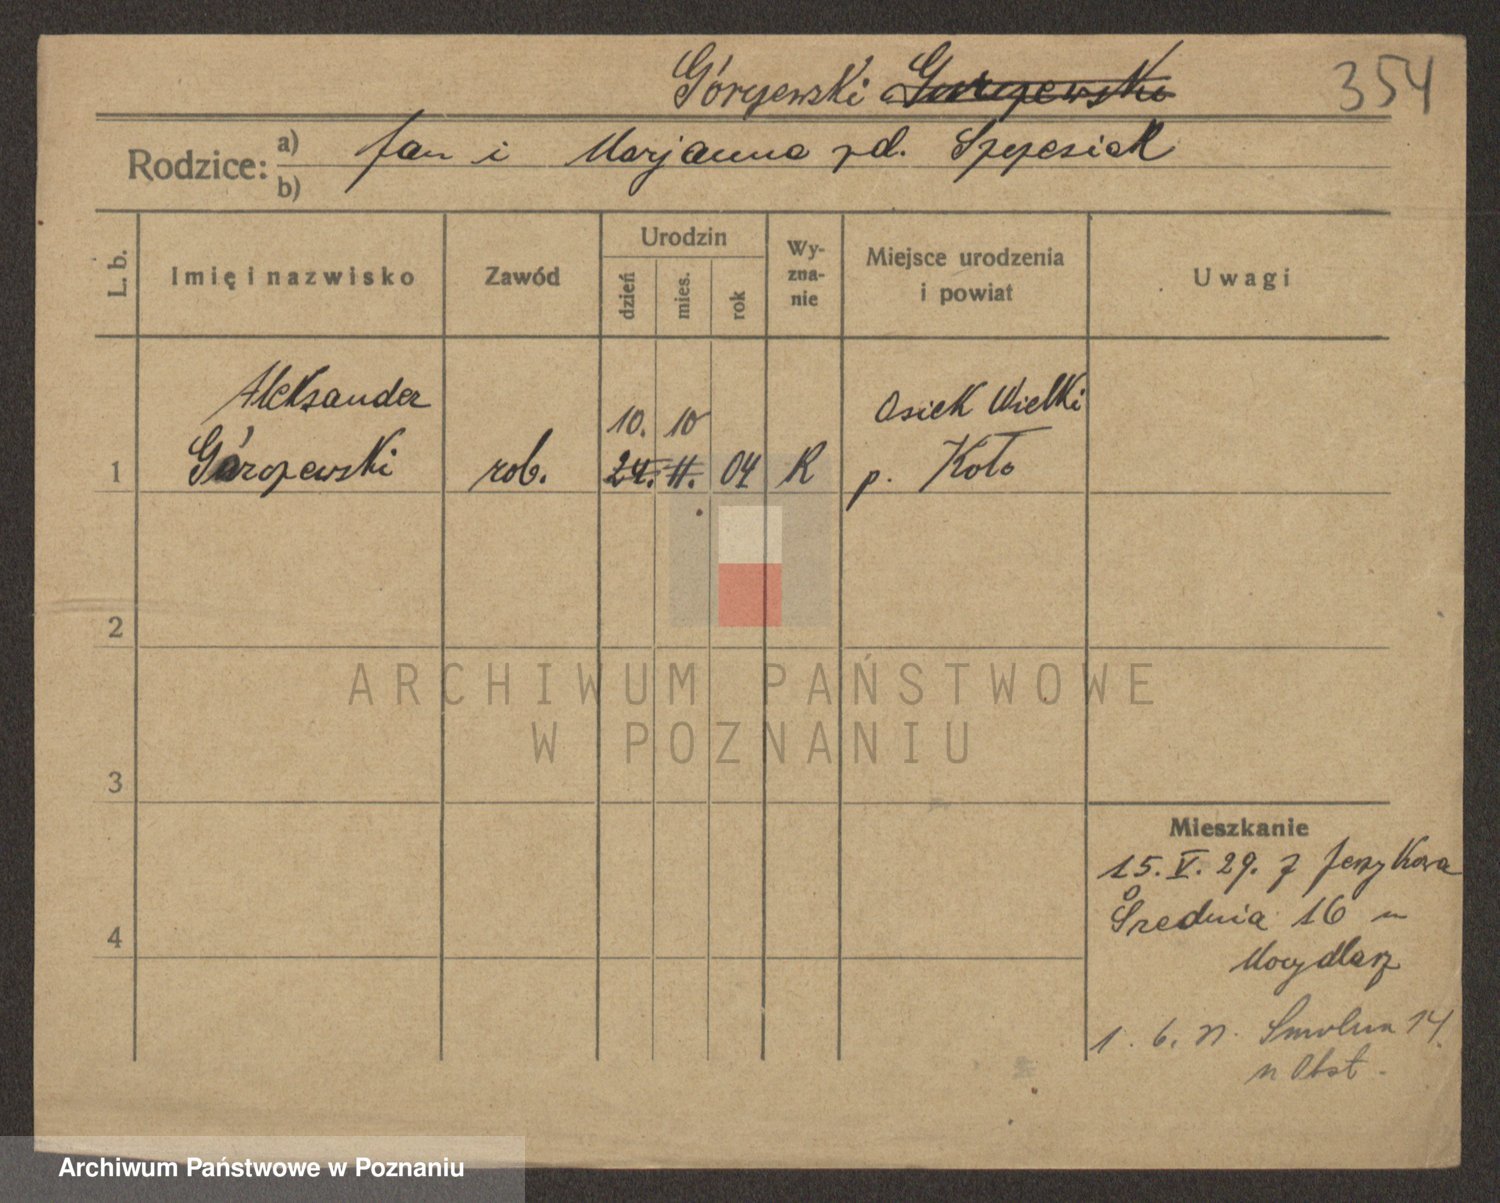 Górzewski Gorzewski
354
Rodzice: a) Jan i Marjanna zd. Szczesiak
b)
L. b.
Imię i nazwisko
Zawód
Urodzin
dzień
mies.
rok
Wy-
zna-
nie
Miejsce urodzenia
i powiat
Uwagi
Aleksander
Górzewski
1
rob.
10. 10
24. 11. 04
R
Osiek Wielki
p. Koło
2
3
4
Mieszkanie
15. V. 29. z Jerzykowa
Średnia 16 u
Mocydlarz
1. 6. Smolna 14.
u Obst.
ARCHIWUM PAŃSTWOWE
W POZNANIU
Archiwum Państwowe w Poznaniu